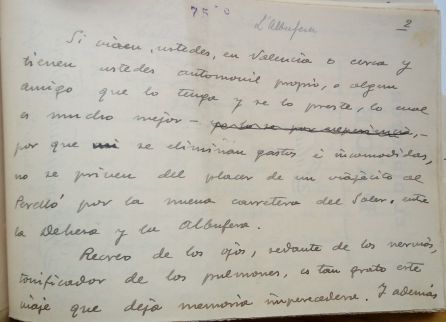 75
L'Albufera
2
Si viven, ustedes, en Valencia o cerca y
tienen ustedes automovil propio, o algun
amigo que lo tenga y se lo preste, lo cual
es mucho mejor - yo lo se por experiencia, -
por que se eliminan gastos é incomodidas,
no se priven del placer de un viajécito al
Perelló por la nueva carretera del Saler, entre
la Dehesa y la Albufera.
Recreo de los ojos, sedante de los nervios,
tonificador de los pulmones, es tan grato este
viaje que deja memoria imperecedera. Y además